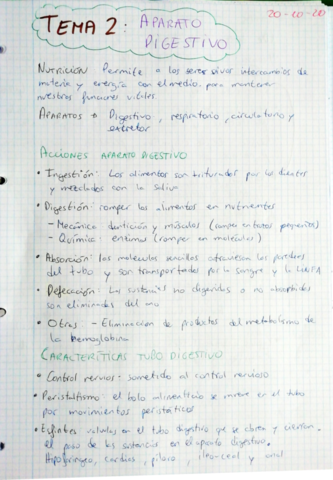 20-10-20
TEMA 2: APARATO
DIGESTIVO
NUTRICIÓN Permite a los seres vivos intercambios de
materia y energía con el medio para mantener
nuestras funciones vitales.
APARATOS → Digestivo, respiratorio, circulatorio y
excretor
ACCIONES APARATO DIGESTIVO
• Ingestión: Los alimentos son triturados por los dientes
y mezclados con la saliva
• Digestión: romper los alimentos en nutrientes
- Mecánica: dentición y músculos (romper en trozos pequeños)
- Química: enzimas (romper en moléculas)
• Absorción: las moléculas sencillas atraviesan las paredes
del tubo y son transportadas por la sangre y la linfa
• Defecación: Las sustancias no digeridas o no absorbidas
son eliminadas del ano
• Otras - Eliminación de productos del metabolismo de
la hemoglobina
CARACTERÍTICAS TUBO DIGESTIVO
• Control nervios: sometido al control nervioso
• Peristaltismo: el bolo alimenticio se mueve en el tubo
por movimientos peristálticos
• Esfínteres válvulas en el tubo digestivo que se abren y cierran
el paso de las sustancias en el aparato digestivo.
Hipofaríngeo, cardias, píloro, íleo-cecal y anal